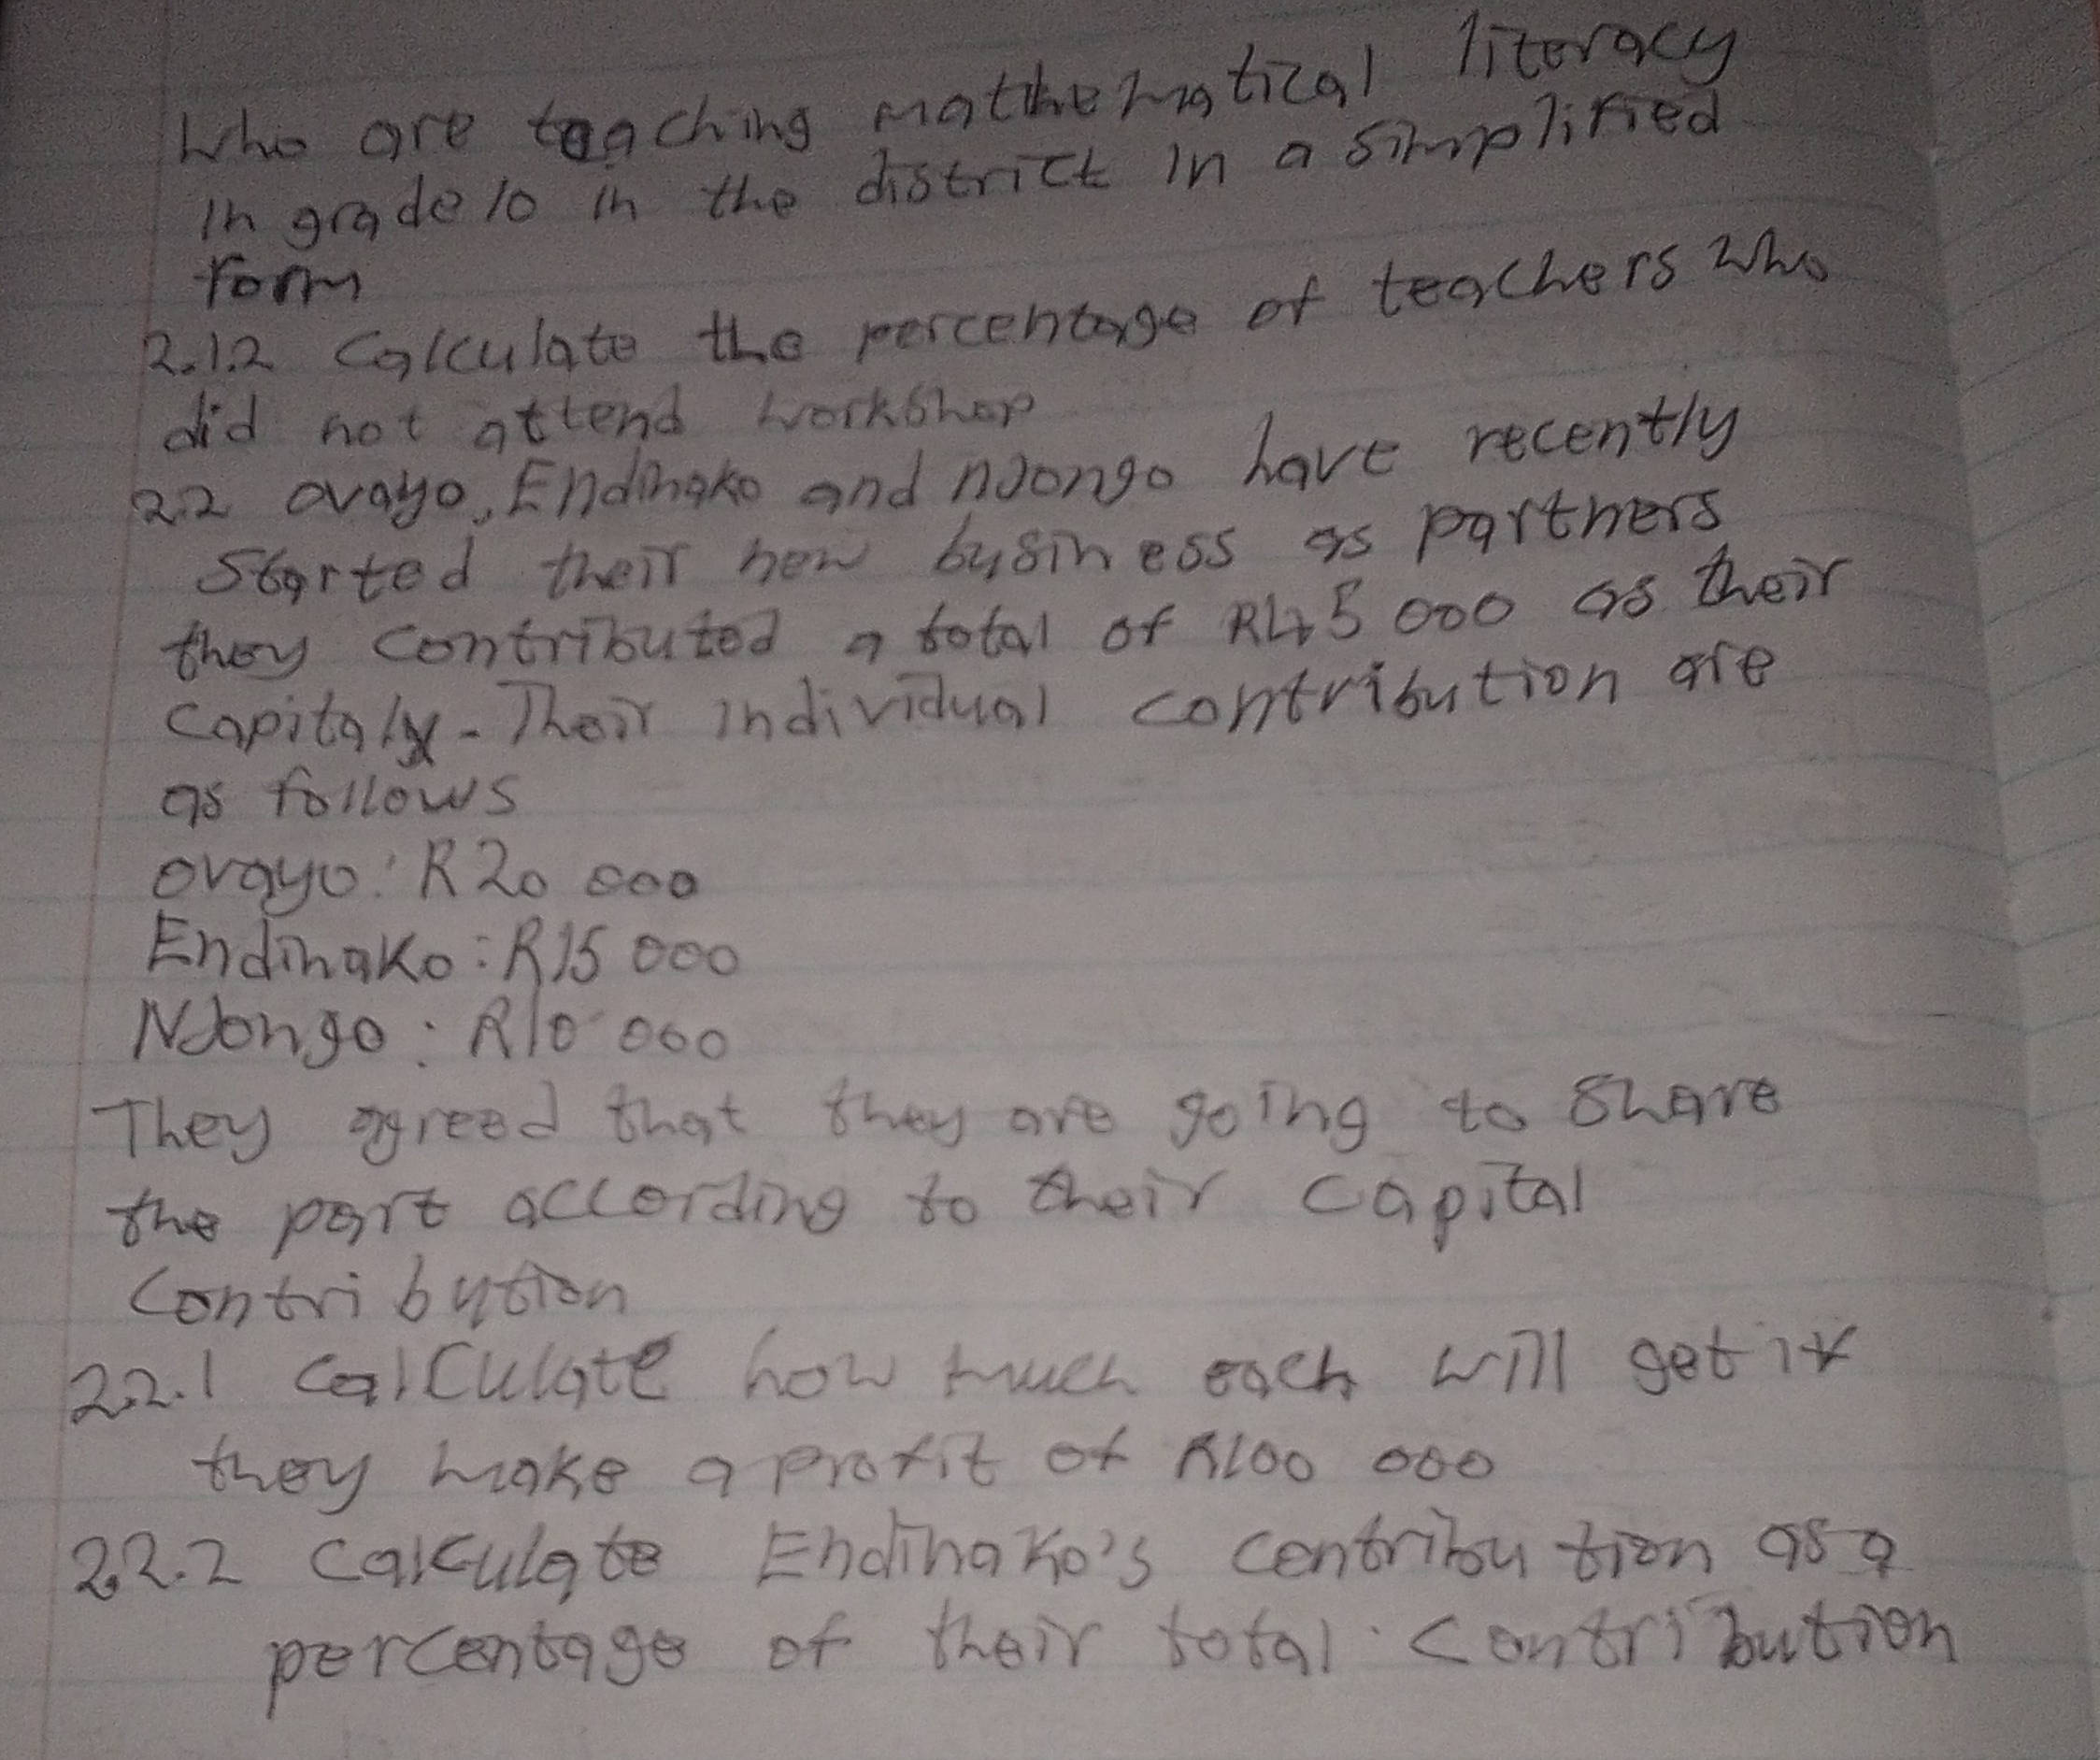 Who are teaching mathematical literacy
in grade 10 in the district in a simplified
form
2.1.2 Calculate the percentage of teachers who
did not attend workshop
2.2 Ovayo, Endinako and Ndongo have recently
Started their new business as partners
they contributed a total of R45 000 as their
Capital - Their individual contribution are
as follows
Ovayo: R20 000
Endinako: R15 000
Ndongo: R10 000
They agreed that they are going to share
the part according to their capital
Contribution
2.2.1 Calculate how much each will get if
they make a profit of R100 000
2.2.2 Calculate Endinako's contribution as a
percentage of their total contribution